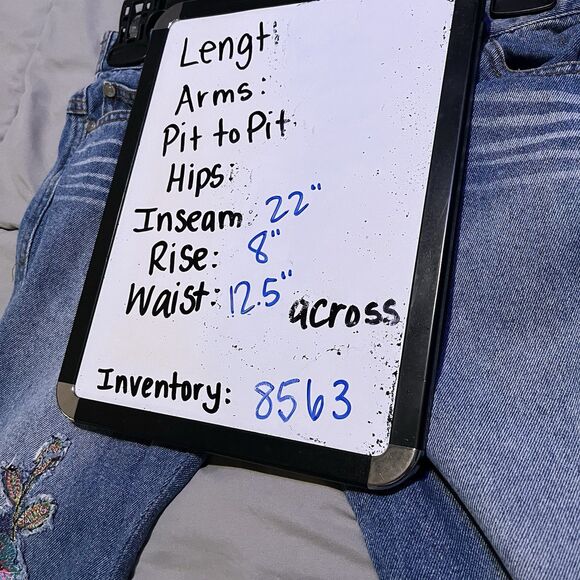 Lengt
Arms:
Pit to Pit
Hips:
Inseam 22"
Rise: 8"
Waist: 12.5" across
Inventory: 8563